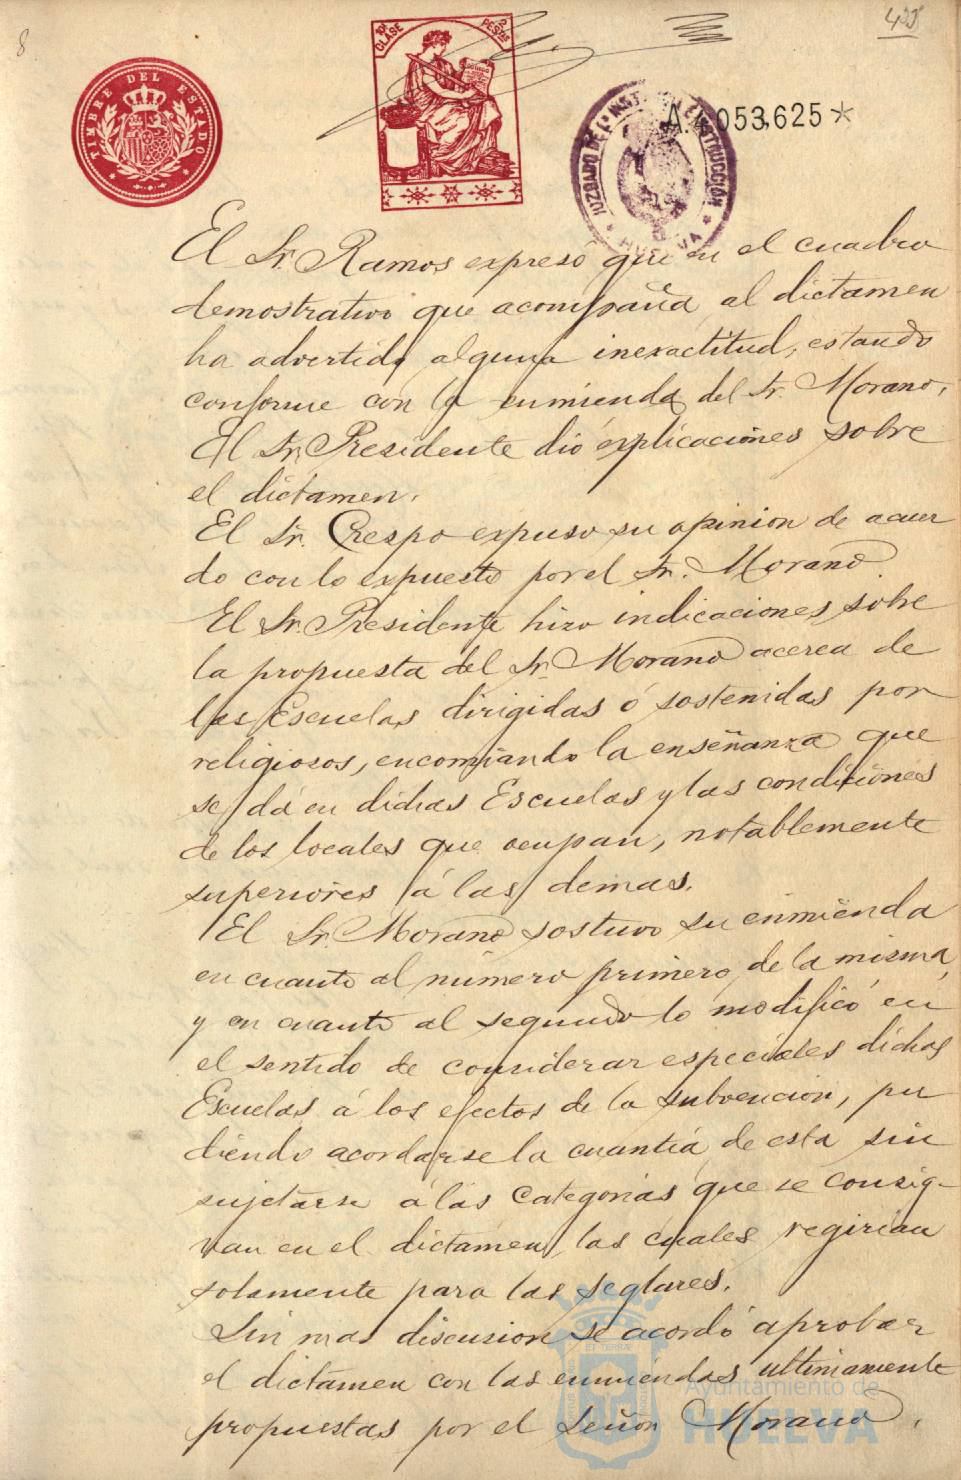 8
TIMBRE DEL ESTADO
10ª CLASE
2 PESTAS
A. 053,625 *
JUZGADO DE 1ª INSTANCIA E INSTRUCCIÓN
* HUELVA *
El Sr. Ramos expresó que en el cuadro
demostrativo que acompaña al dictamen
ha advertido alguna inexactitud, estando
conforme con la enmienda del Sr. Morano.
El Sr. Presidente dió explicaciones sobre
el dictamen.
El Sr. Crespo expuso su opinion de acuer
do con lo expuesto por el Sr. Morano
El Sr. Presidente hizo indicaciones sobre
la propuesta del Sr. Morano acerca de
las Escuelas dirigidas ó sostenidas por
religiosos, encomiando la enseñanza que
se dá en dichas Escuelas y las condiciones
de los locales que ocupan, notablemente
superiores á las demas.
El Sr. Morano sostuvo su enmienda
en cuanto al número primero de la misma,
y en cuanto al segundo lo modificó en
el sentido de considerar especiales dichas
Escuelas á los efectos de la subvencion, pu
diendo acordarse la cuantía de esta sin
sujetarse á las categorias que se consig-
nan en el dictámen, las cuales regirian
solamente para las seglares.
Sin mas discusion se acordó aprobar
el dictamen con las enmiendas ultimamente
propuestas por el Señor Morano.
Ayuntamiento de
HUELVA